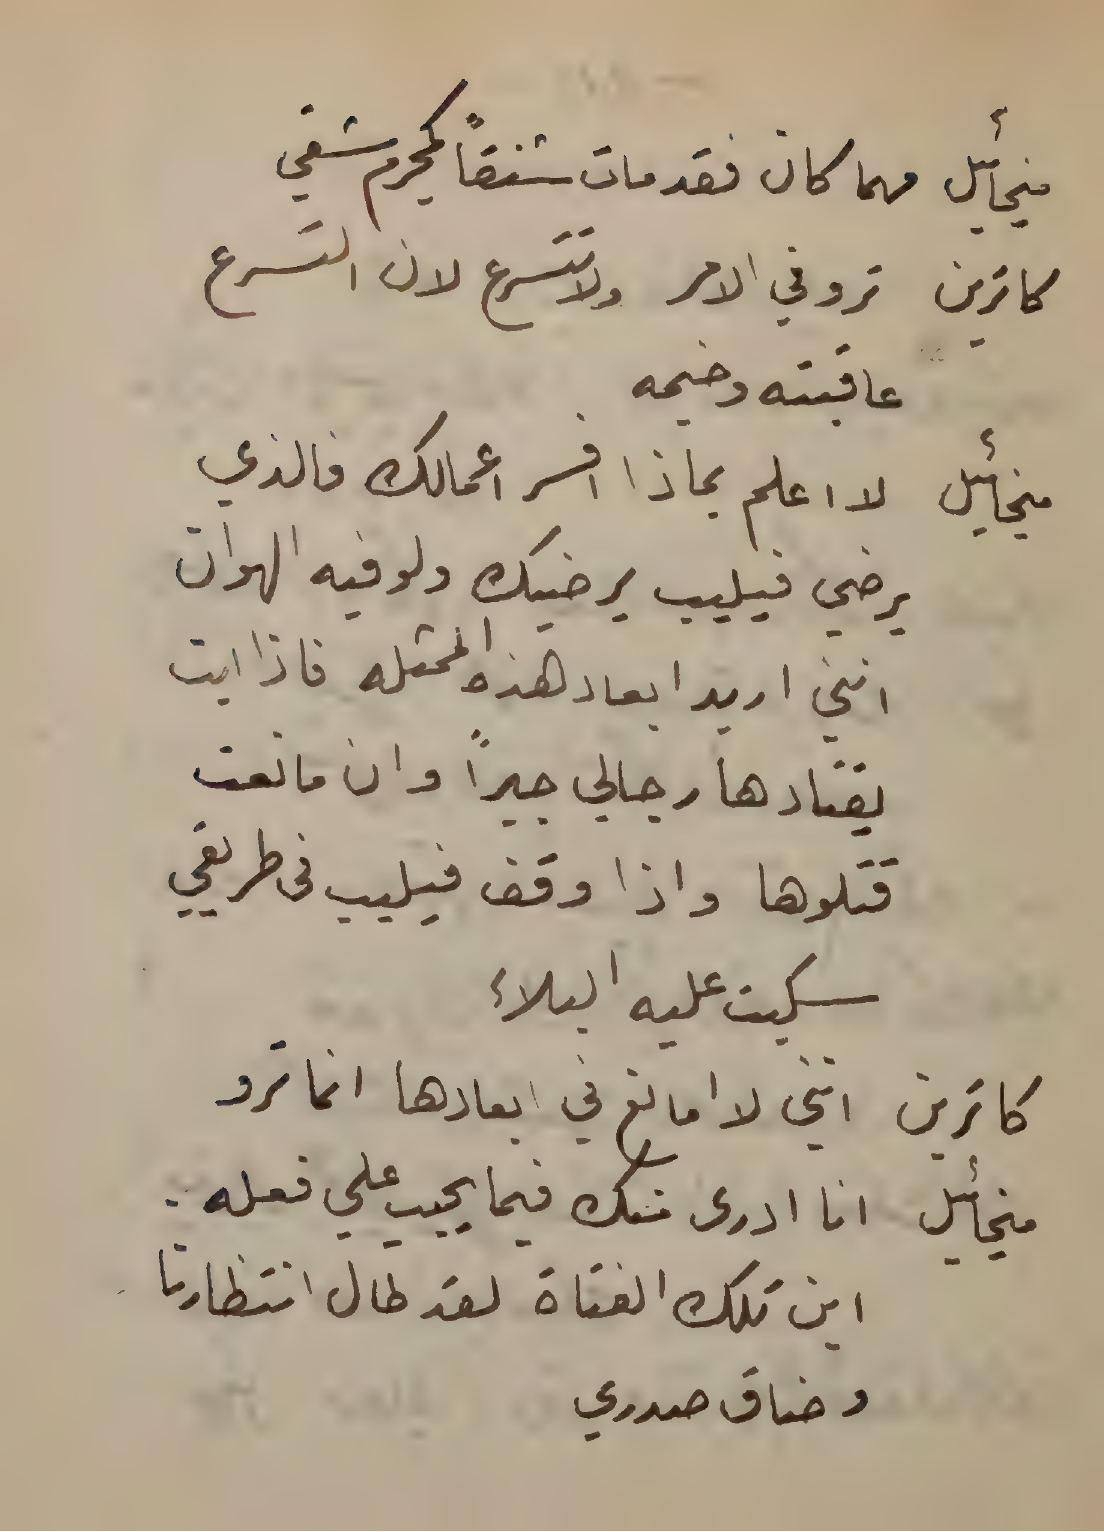 ميخائيل مهما كان فقد مات شنقاً كمجرم شقي
كاترين تروفي الامر ولا تتسرع لان التسرع
عاقبته وخيمه
ميخائيل لا اعلم بماذا افسر اعمالك فالذي
يرضي فيليب يرضيك ولو فيه الهوان
انني اريد ابعاد هذه الممثله فاذا ابت
يقتادها رجالي جبراً وان مانعت
قتلوها واذا وقف فيليب فى طريقي
سكبت عليه البلاء
كاترين انني لا امانع في ابعادها انما ترو
ميخائيل انا ادرى منك فيما يجب علي فعله ..
اين تلك الفتاة لقد طال انتظارنا
وضاق صدري